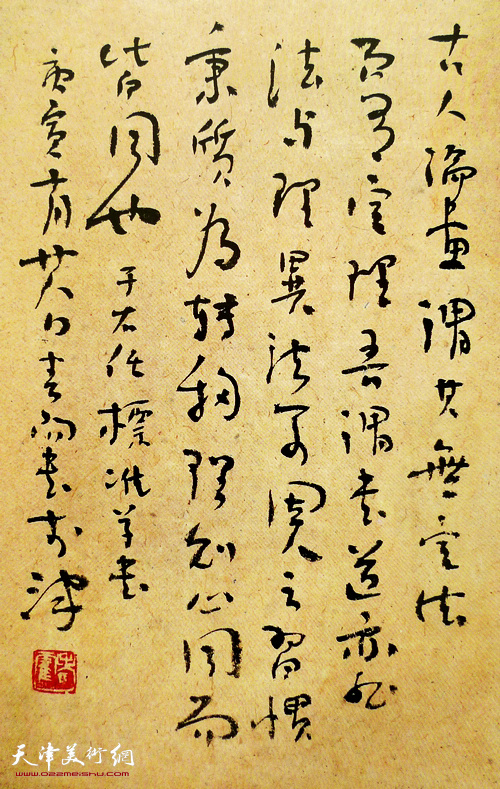 古人論畫謂其無定法
而有定理吾謂書道亦然
法與理異法可因人之習慣
秉質為轉移理則心同而
皆同也 于右任標準草書
庚寅十月廿八日書雨書于津
天津美術網
www.022meishu.com